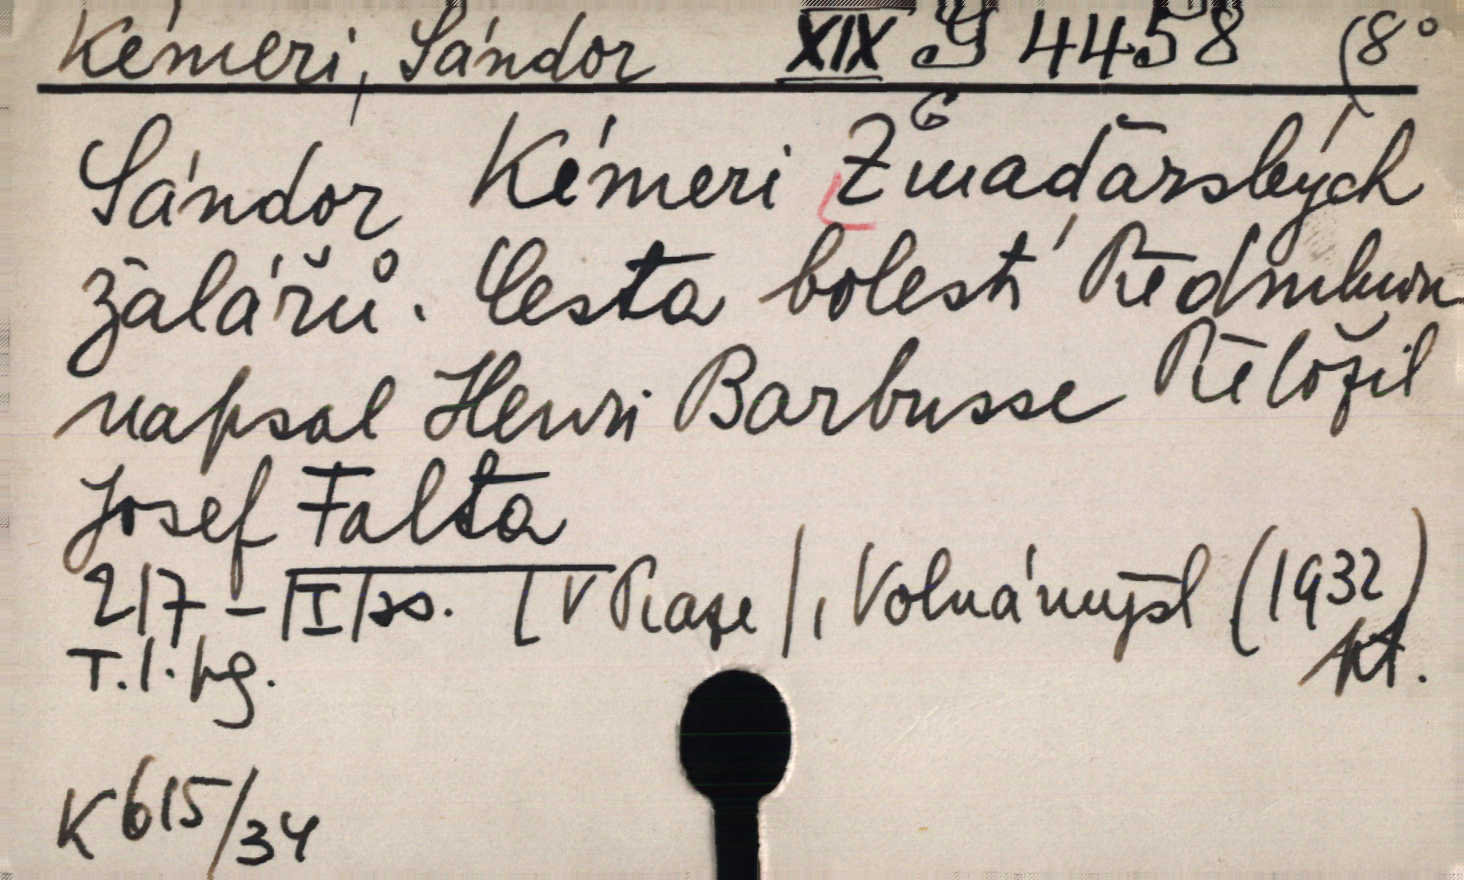 Kémeri, Sándor XIX G 4458 (8°
G
Sándor Kémeri Z maďarských
žalářů. Cesta bolesti Předmluvu
napsal Henri Barbusse Přeložil
Josef Falta
217 - |I| ss. [V Praze], Volná mysl (1932)
T. l. pg. kt.
K 615/34